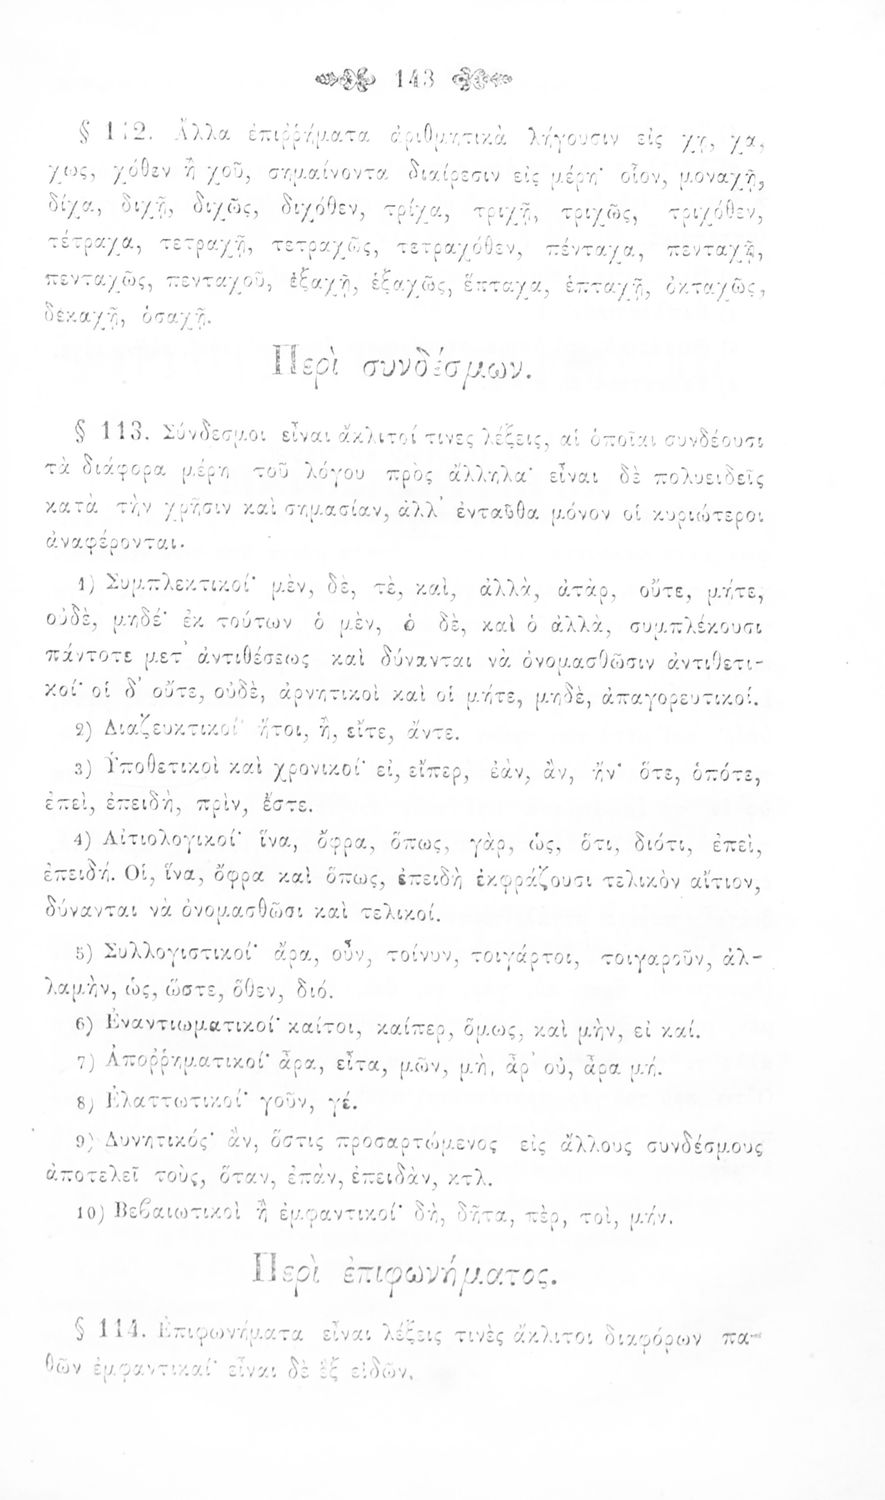 143
§ 112. Ἄλλα ἐπιῤῥήματα ἀριθμητικὰ λήγουσιν εἰς χη, χα,
χως, χόθεν ἢ χοῦ, σημαίνοντα διαίρεσιν εἰς μέρη˙ οἷον, μοναχῆ,
δίχα, διχῆ, διχῶς, διχόθεν, τρίχα, τριχῆ, τριχῶς, τριχόθεν,
τέτραχα, τετραχῆ, τετραχῶς, τετραχόθεν, πένταχα, πενταχῆ,
πενταχῶς, πενταχοῦ, ἑξαχῆ, ἑξαχῶς, ἕπταχα, ἑπταχῆ, ὀκταχῶς,
δεκαχῆ, ὁσαχῆ.
Περὶ συνδέσμων.
§ 113. Σύνδεσμοι εἶναι ἄκλιτοί τινες λέξεις, αἱ ὁποῖαι συνδέουσι
τὰ διάφορα μέρη τοῦ λόγου πρὸς ἄλληλα˙ εἶναι δὲ πολυειδεῖς
κατὰ τὴν χρῆσιν καὶ σημασίαν, ἀλλ᾽ ἐνταῦθα μόνον οἱ κυριώτεροι
ἀναφέρονται.
1) Συμπλεκτικοί˙ μὲν, δὲ, τὲ, καὶ, ἀλλὰ, ἀτὰρ, οὔτε, μήτε,
οὐδὲ, μηδέ˙ ἐκ τούτων ὁ μὲν, ὁ δὲ, καὶ ὁ ἀλλὰ, συμπλέκουσι
πάντοτε μετ᾽ ἀντιθέσεως καὶ δύνανται νὰ ὀνομασθῶσιν ἀντιθετι-
κοί˙ οἱ δ᾽ οὔτε, οὐδὲ, ἀρνητικοὶ καὶ οἱ μήτε, μηδὲ, ἀπαγορευτικοί.
2) Διαζευκτικοί˙ ἤτοι, ἢ, εἴτε, ἄντε.
3) Ὑποθετικοὶ καὶ χρονικοί˙ εἰ, εἴπερ, ἐὰν, ἂν, ἤν˙ ὅτε, ὁπότε,
ἐπεὶ, ἐπειδὴ, πρὶν, ἔστε.
4) Αἰτιολογικοί˙ ἵνα, ὄφρα, ὅπως, γὰρ, ὡς, ὅτι, διότι, ἐπεὶ,
ἐπειδή. Οἱ, ἵνα, ὄφρα καὶ ὅπως, ἐπειδὴ ἐκφράζουσι τελικὸν αἴτιον,
δύνανται νὰ ὀνομασθῶσι καὶ τελικοί.
5) Συλλογιστικοί˙ ἄρα, οὖν, τοίνυν, τοιγάρτοι, τοιγαροῦν, ἀλ-
λαμὴν, ὡς, ὥστε, ὅθεν, διό.
6) Ἐναντιωματικοί˙ καίτοι, καίπερ, ὅμως, καὶ μὴν, εἰ καί.
7) Ἀποῤῥηματικοί˙ ἆρα, εἶτα, μῶν, μὴ, ἆρ᾽ οὐ, ἆρα μή.
8) Ἐλαττωτικοί˙ γοῦν, γέ.
9) Δυνητικός˙ ἂν, ὅστις προσαρτώμενος εἰς ἄλλους συνδέσμους
ἀποτελεῖ τοὺς, ὅταν, ἐπὰν, ἐπειδὰν, κτλ.
10) Βεβαιωτικοὶ ἢ ἐμφαντικοί˙ δὴ, δῆτα, πὲρ, τοὶ, μήν.
Περὶ ἐπιφωνήματος.
§ 114. Ἐπιφωνήματα εἶναι λέξεις τινὲς ἄκλιτοι διαφόρων πα-
θῶν ἐμφαντικαί˙ εἶναι δὲ ἓξ εἰδῶν.